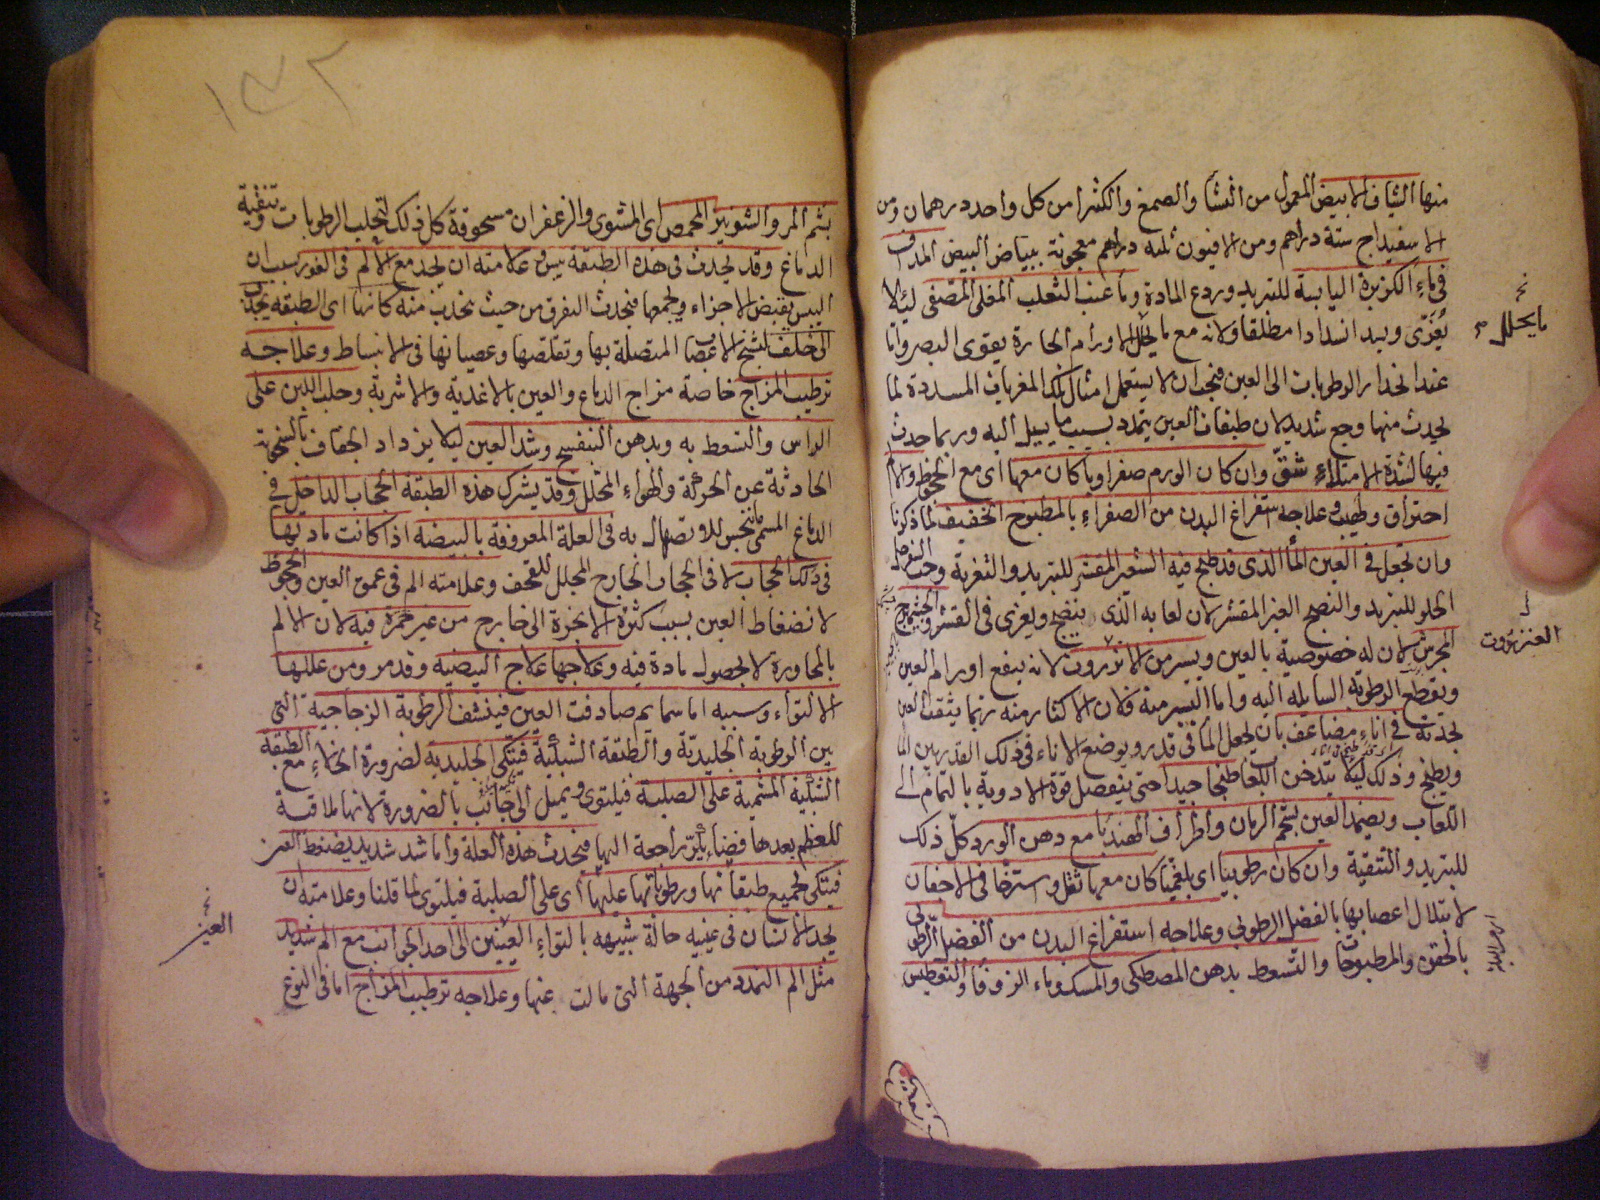 منها الشياف الابيض المعمول من النشا والصمغ والكثيرا من كل واحد درهمان ومن
الاسفيداج ستة دراهم ومن الافيون ثلثة دراهم معجونة ببياض البيض المداف
في ماء الكزبرة اليابسة للتبريد وردع المادة وماء عنب الثعلب المغلى المصفى لئلا
يغرى ويسد انسدادا مطلقا ولانه مع ما يحلل الاورام الحارة يقوى البصر واما
عند انحدار الرطوبات الى العين فيجب ان لا يستعمل امثال تلك المغريات المسددة لما
يحدث منها وجع شديد لان طبقات العين يتمدد بسبب ما يسيل اليه وربما حدث
فيها لشدة الامتلاء شق وان كان الورم صفراويا كان معها اى مع الجحوظ والالم
احتراق ولهيب وعلاجه استفراغ البدن من الصفراء بالمطبوح الخفيف لما ذكرنا
وان تجعل في العين الماء الذى قد طبخ فيه الشعير المقشر للتبريد والتغرية وحب السفرجل
الحلو للتبريد والنضج الغير المقشر لان لعابه الذى ينضج ويغرى في القشر والجشمزج
المجرش لان له خصوصية بالعين ويسير من الانزروت لانه ينفع اورام العين
ويقطع الرطوبة السايلة اليه واما اليسير منه فلان الاكثار منه ربما يثقب العين
لحدته في اناء مضاعف بان يجعل الماء في قدر ويوضع الاناء في ذلك القدر بين الماء
ويطبخ وذلك ليلا يتدخن اللعاب طبخا جيدا حتى ينفصل قوة الادوية بالتمام الى
اللعاب ويضمد العين بشحم الرمان واطراف الهندبا مع دهن الورد كل ذلك
للتبريد والتنقية وان كان رطوبيا اى بلغميا كان معها ثقل واسترخا في الاجفان
لابتلال اعصابها بالفضل الرطوبى وعلاجه استفراغ البدن من الفضل الرطوبى
بالحقن والمطبوخات والتسعط بدهن المصطكى والمسك وماء الزوفا والتعطيس
ما يحلل
العنزروت
بشم المر والشونيز المحمص اى المشوى والزعفران مسحوقة كل ذلك لتحلب الرطوبات وتنقية
الدماغ وقد يحدث في هذه الطبقة يبس وعلامته ان يجد مع الالم في الغور بسبب ان
اليبس يقبض الاجزاء ويجمعها فيحدث التفرق من حيث ينجذب منه كانها اى الطبقة يجذب
الى خلف لتشنج الاعصاب المتصلة بها وتقلصها وعصيانها في الانبساط وعلاجه
ترطيب المزاج خاصة مزاج الدماغ والعين بالاغذية والاشربة وحلب اللبن على
الراس والتسعط به وبدهن البنفسج وشد العين ليلا يزداد الجفاف بالسخونة
الحادثة عن الحركة والهواء المحلل وقد يشرك هذه الطبقة الحجاب الداخل في
الدماغ المسمى للاتصال به في العلة المعروفة بالبيضة اذا كانت مادتها
في ذلك الحجاب لا في الحجاب الخارج المجلل للقحف وعلامته الم في عمق العين والجحوظ
لانضغاط العين بسبب كثرة الابخرة الى خارج من غير حمرة فيه لان الالم
بالمجاورة لا لحصول مادة فيه وعلاجها علاج البيضة وقد مر ومن عللها
الالتواء وسببه اما سمايم صادفت العين فينشف الرطوبة الزجاجية التى
بين الرطوبة الجليدية والطبقة الشبكية فيتكى الجليدية لضرورة الخلاء مع الطبقة
الشبكية المشيمية على الصلبة فيلتوى ويميل الى جانب بالضرورة لانها ملاقية
للعظم بعدها فيحدث هذه العلة واما شد شديد يضغط العين
فيتكى جميع طبقاتها ورطوباتها عليها اى على الصلبة فيلتوى لما قلنا وعلامته ان
يجد الانسان في عينيه حالة شبيهه بالتواء العينين الى احد الجوانب مع الم شديد
مثل الم التمدد من الجهة التى مالت عنها وعلاجه ترطيب المزاج اما في النوع
العين